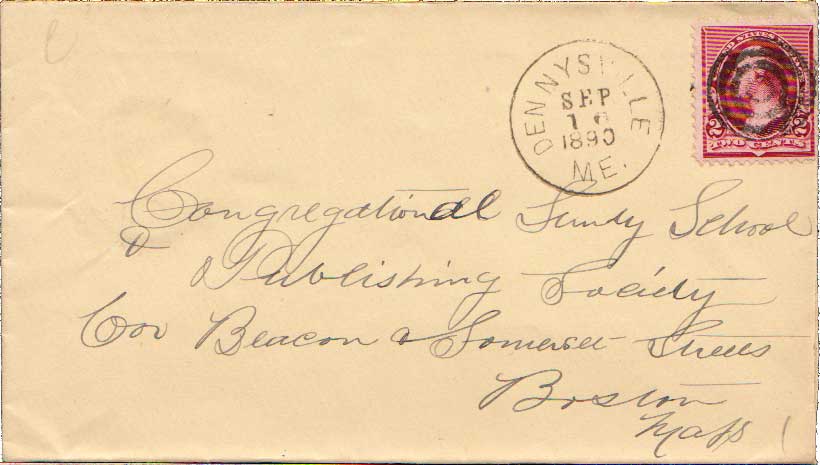 DENNYSVILLE
SEP
16
1890
ME.
UNITED STATES POSTAGE
2 2
TWO CENTS
Congregational Sundy School
& Publishing Society
Cor Beacon & Somerset Streets
Boston
Mass